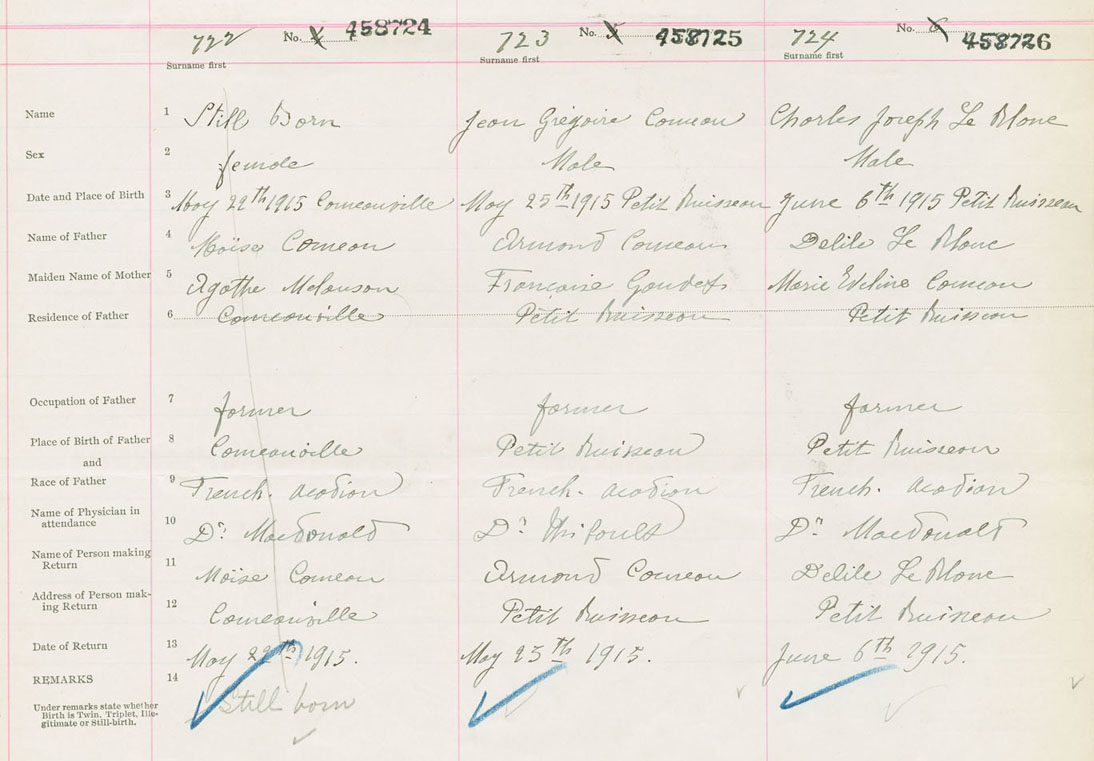 722 No. 458724 723 No. 458725 724 No. 458726
Surname first Surname first Surname first
Name 1 Still Born Jean Grégoire Comeau Charles Joseph Le Blanc
Sex 2 female Male Male
Date and Place of Birth 3 May 22th 1915 Comeauville May 25th 1915 Petit Ruisseau June 6th 1915 Petit Ruisseau
Name of Father 4 Moïse Comeau Armand Comeau Delile Le Blanc
Maiden Name of Mother 5 Agathe Melanson Françoise Gaudet Marie Evéline Comeau
Residence of Father 6 Comeauville Petit Ruisseau Petit Ruisseau
Occupation of Father 7 farmer farmer farmer
Place of Birth of Father 8 Comeauville Petit Ruisseau Petit Ruisseau
and
Race of Father 9 French. Acadian French. Acadian French. Acadian
Name of Physician in
attendance 10 Dr. MacDonald Dr. Dr. MacDonald
Name of Person making
Return 11 Moïse Comeau Armand Comeau Delile Le Blanc
Address of Person mak-
ing Return 12 Comeauville Petit Ruisseau Petit Ruisseau
Date of Return 13 May 22th 1915. May 25th 1915. June 6th 1915.
REMARKS 14 Still born
Under remarks state whether
Birth is Twin, Triplet, Ille-
gitimate or Still-birth.